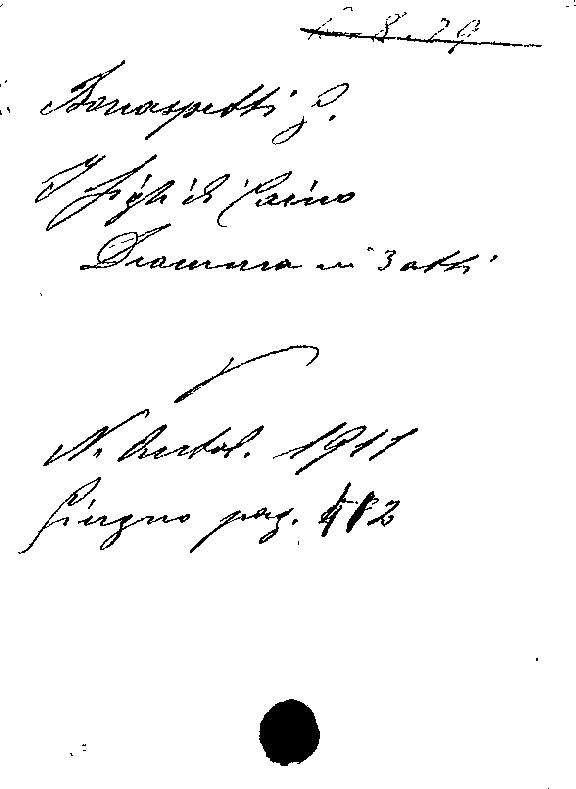 Bonaspetti G.
I figli di Caino
Dramma in 3 atti
N. Antol. 1911
Giugno pag. 82